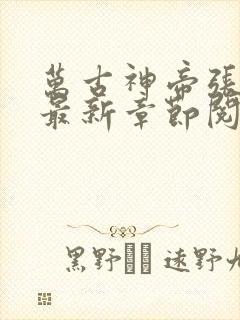 萬古神帝張
最新章節閱
黑野 遠野九